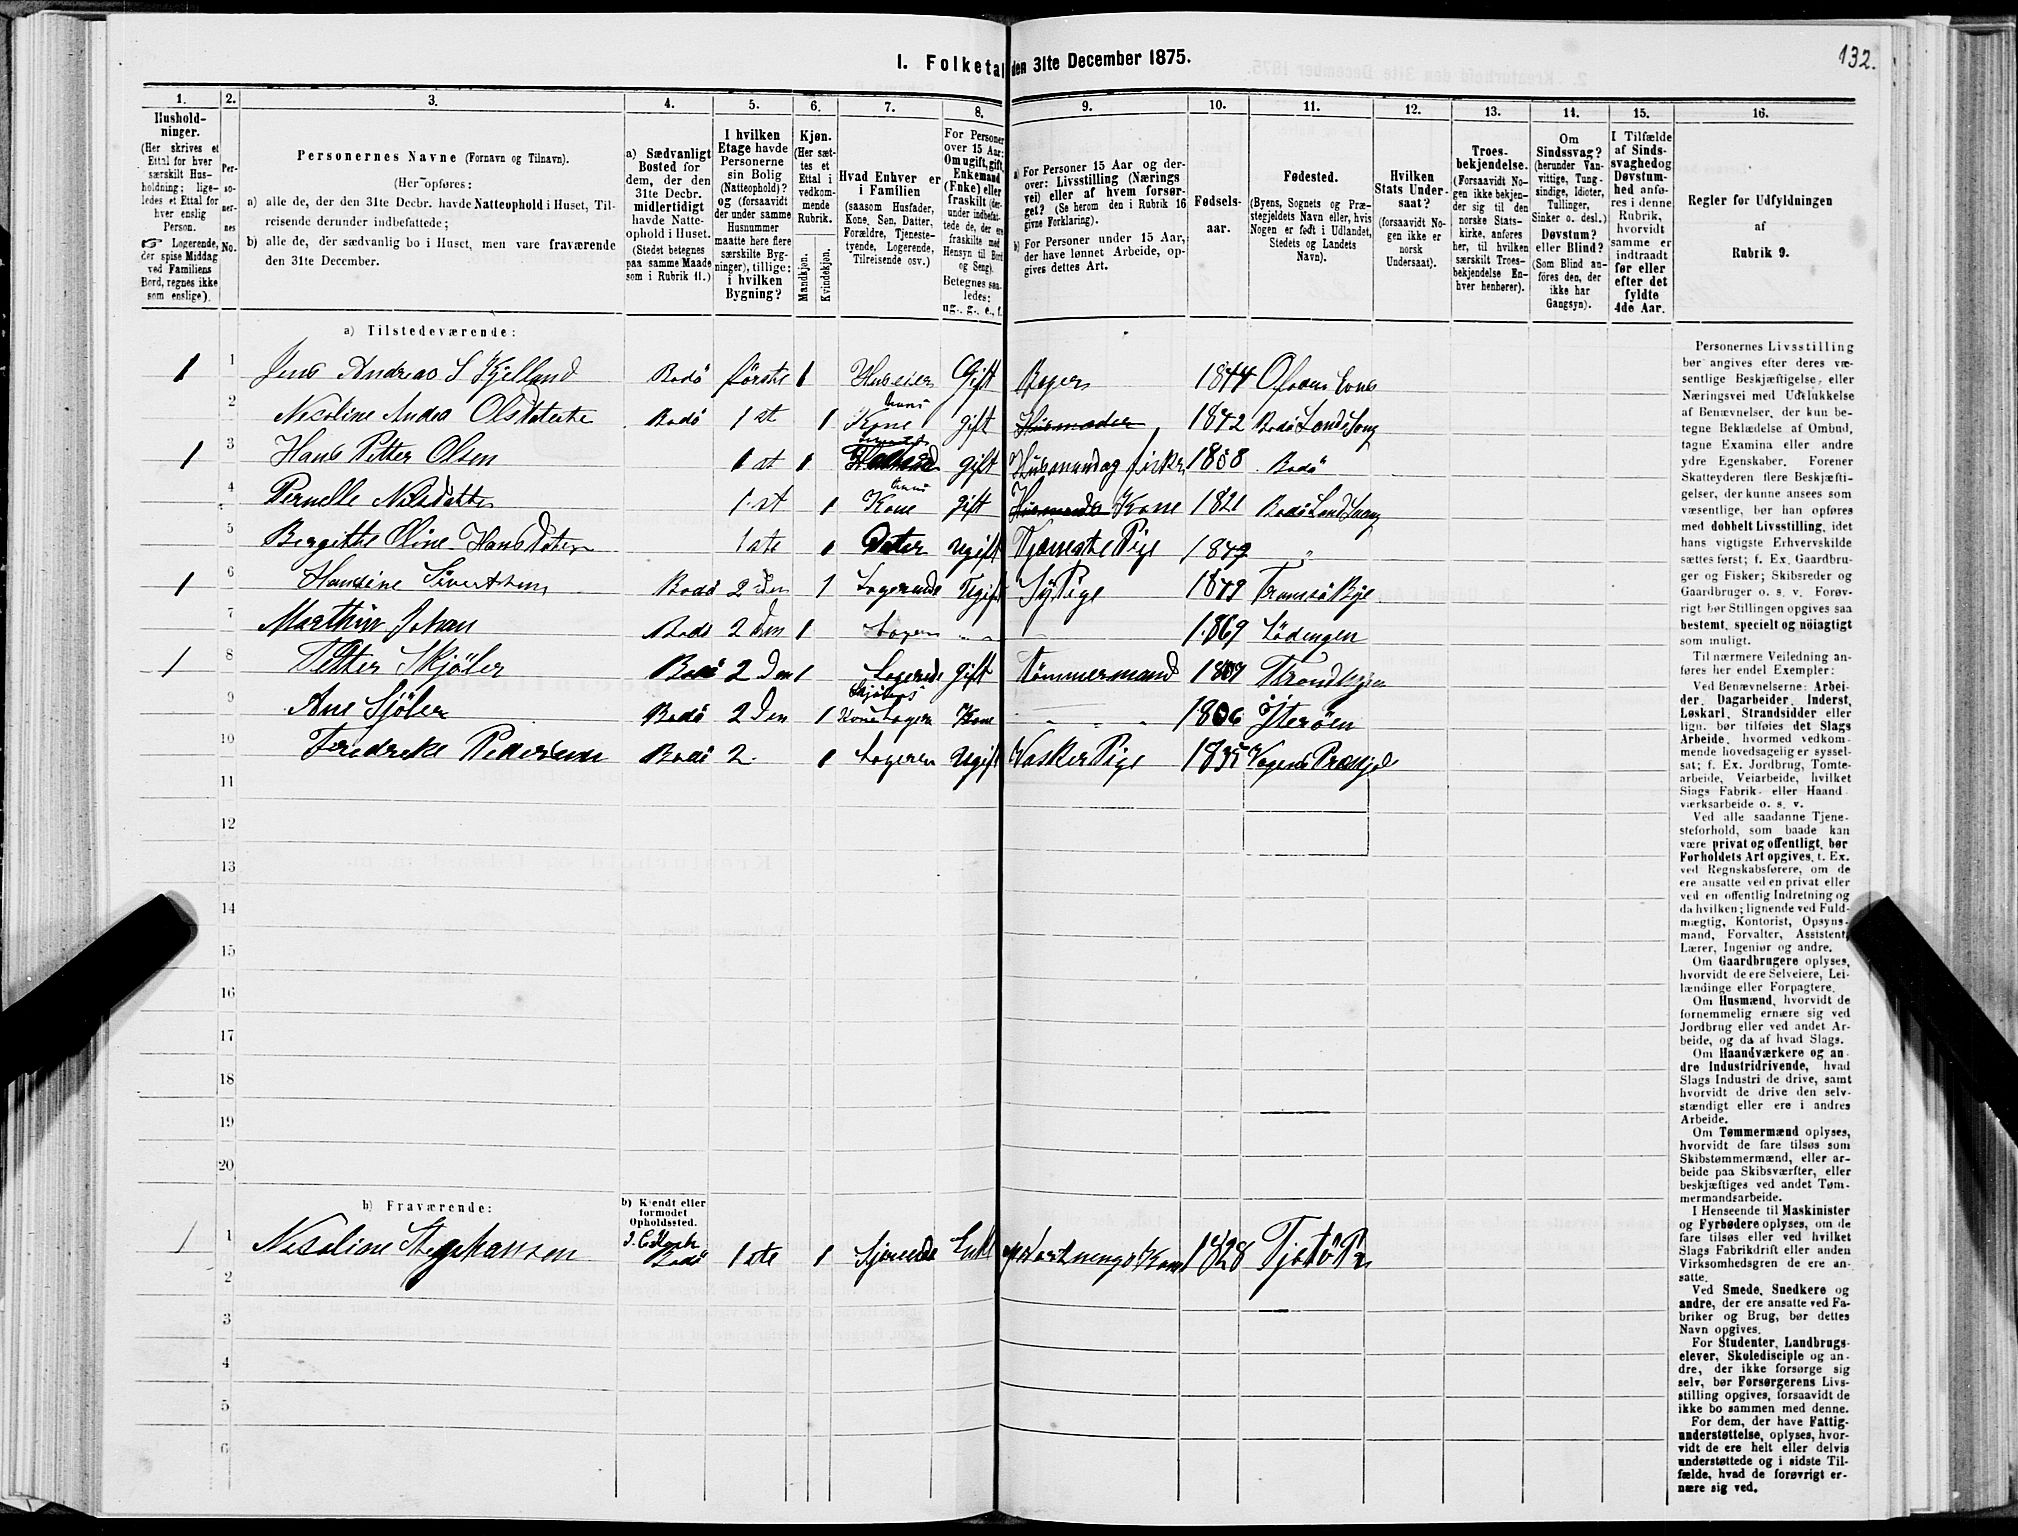 I. Folketal den 31te December 1875.
132.
1.
2.
3.
4.
5.
6.
7.
8.
9.
10.
11.
12.
13.
14.
15.
16.
Hushold-
ninger.
(Her skrives et
Ettal for hver
særskilt Hus-
holdning; lige-
ledes et Ettal for
hver enslig
Person.
☞ Logerende,
der spise Middag
ved Familiens
Bord, regnes ikke
som enslige).
Per-
so-
ner-
nes
No.
Personernes Navne (Fornavn og Tilnavn).
(Her opføres:
a) alle de, der den 31te Decbr. havde Natteophold i Huset, Til-
reisende derunder indbefattede;
b) alle de, der sædvanlig bo i Huset, men vare fraværende
den 31te December.
a) Sædvanligt
Bosted for
dem, der den
31te Decbr.
midlertidigt
havde Natte-
ophold i Huset.
(Stedet betegnes
paa samme Maade
som i Rubrik 11.)
I hvilken
Etage havde
Personerne
sin Bolig
(Natteophold)?
og (forsaavidt
der under samme
Husnummer
maatte høre flere
særskilte Byg-
ninger), tillige:
i hvilken
Bygning?
Kjøn.
(Her sæt-
tes et
Ettal i
vedkom-
mende
Rubrik.
Mandkjøn.
Kvindekjøn.
Hvad Enhver er
i Familien
(saasom Husfader,
Kone, Søn, Datter,
Forældre, Tjeneste-
tyende, Logerende,
Tilreisende osv.)
For Personer
over 15 Aar:
Om ugift, gift,
Enkemand
(Enke) eller
fraskilt (der-
under indbefat-
tede de, der ere
fraskilte med
Hensyn til Bord
og Seng).
Betegnes saa-
ledes:
ug., g., e., f.
a) For Personer 15 Aar og der-
over: Livsstilling (Nærings
vei) eller af hvem forsør-
get? (Se herom den i Rubrik 16
givne Forklaring).
b) For Personer under 15 Aar,
der have lønnet Arbeide, op-
gives dettes Art.
Fødsels-
aar.
Fødested.
(Byens, Sognets og Præ-
stegjeldets Navn eller, hvis
Nogen er født i Udlandet,
Stedets og Landets
Navn).
Hvilken
Stats Under-
saat?
(forsaavidt No-
gen ikke er
norsk
Undersaat).
Troes-
bekjendelse.
(Forsaavidt No-
gen ikke bekjen-
der sig til den
norske Stats-
kirke, anføres
her, til hvilken
særskilt Troes-
bekjendelse En-
hver henhører).
Om
Sindssvag?
(herunder Van-
vittige, Tung-
sindige, Idioter,
Tullinger,
Sinker o. desl.)
Døvstum?
eller Blind?
(Som Blind an-
føres den, der
ikke har
Gangsyn).
I Tilfælde
af Sinds-
svaghed og
Døvstum-
hed anfø-
res i denne
Rubrik,
hvorvidt
samme er
indtraadt
før eller
efter det
fyldte
4de Aar.
Regler for Udfyldningen
af
Rubrik 9.
a) Tilstedeværende:
1 1 Jens Andreas S Kjelland Bodö förste 1 Huseier Gift 1844
2 Nicoline Andrea Olsdatter Bodö 1 st 1 Kone gift Husmoder 1842 Bodö
1 3 Hans Petter Olsen 1 st 1 gift 1808 Bodö
4 Pernelle Nilsdatter 1 st 1 Kone gift Kone 1821 Bodö
5 Bergitte Oline Hansdater 1 ste 1 Dater Ugift Tjeneste Pige 1849 "
1 6 Hansine Sivertsen Bodö 2 den 1 Logerende Ugift Sy Pige 1849 Tromsö Bye
7 Marthin Johan Bodö 2 den 1 1869 Lödingen
1 8 Petter Skjöler Bodö 2 den 1 Logerede gift Tömmermand Trondhjem
9 Ane Sjöler Bodö 2 den 1 Kone 1806 Yteröen
10 Fredreke Pedersen Bodö 2. 1 Logeren Ugift Vasker Pige 1835
11
12
13
14
15
16
17
18
19
20
b) Fraværende:
b) Kjendt eller
formodet
Opholdssted.
1 1 Nicoline Stephansen Bodö 1 ste 1 1828
2
3
4
5
6
Personernes Livsstilling
bør angives efter deres væ-
sentlige Beskjæftigelse, eller
Næringsvei med Udelukkelse
af Benævnelser, der kun be-
tegne Beklædelse af Ombud,
tagne Examina eller andre
ydre Egenskaber. Forener
Skatteyderen flere Beskjæfti-
gelser, der kunne ansees som
væsentlige, bør han opføres
med dobbelt Livsstilling, idet
hans vigtigste Erhvervskilde
sættes først; f. Ex. Gaardbru-
ger og Fisker; Skibsreder og
Gaardbruger o. s. v. Forøv-
rigt bør Stillingen opgives saa
bestemt, specielt og nöiagtigt
som muligt.
Til nærmere Veiledning an-
føres her endel Exempler:
Ved Benævnelserne: Arbei-
der, Dagarbeider, Inderst,
Løskarl, Strandsidder eller
lign. bør tilføies det Slags
Arbeide, hvormed vedkom-
mende hovedsagelig er syssel-
sat; f. Ex. Jordbrug, Tomte-
arbeide, Veiarbeide, hvilket
Slags Fabrik- eller Haand-
værksarbeide o. s. v.
Ved alle saadanne Tjene-
steforhold, som baade kan
være privat og offentligt, bør
Forholdets Art opgives, t. Ex.
ved Regnskabsførere, om de
ere ansatte ved en privat eller
ved en offentlig Indretning og
da hvilken; lignende ved Fuld-
mægtig, Kontorist, Opsyns-
mand, Forvalter, Assistent,
Lærer, Ingeniør og andre.
Om Gaardbrugere oplyses,
hvorvidt de ere Selveiere, Lei-
lændinge eller Forpagtere.
Om Husmænd, hvorvidt de
fornemmelig ernære sig ved
Jordbrug eller ved andet Ar-
beide, og da af hvad Slags.
Om Haandværkere og an-
dre Industridrivende, hvad
Slags Industri de drive, samt
hvorvidt de drive den selv-
stændigt eller ere i andres
Arbeide.
Om Tømmermænd oplyses,
hvorvidt de fare tilsøs som
Skibstømmermænd, eller ar-
beide paa Skibsværfter, eller
beskjæftiges ved andet Tøm-
mermandsarbeide.
I Henseende til Maskinister
og Fyrbødere oplyses, om de
fare tilsøs eller ved hvilket
Slags Fabrikdrift eller anden
Virksomhedsgren de ere an-
satte.
Ved Smede, Snedkere og
andre, der ere ansatte ved Fa-
briker og Brug, bør dettes
Navn opgives.
For Studenter, Landbrugs-
elever, Skoledisciple og an-
dre, der ikke forsørge sig
selv, bør Forsørgerens Livs-
stilling opgives, forsaavidt de
ikke bo sammen med denne.
For dem, der have Fattig-
understøttelse, oplyses, hvor-
vidt de ere helt eller delvis
understøttede og i sidste Til-
fælde, hvad de forøvrigt er-
nære sig ved.